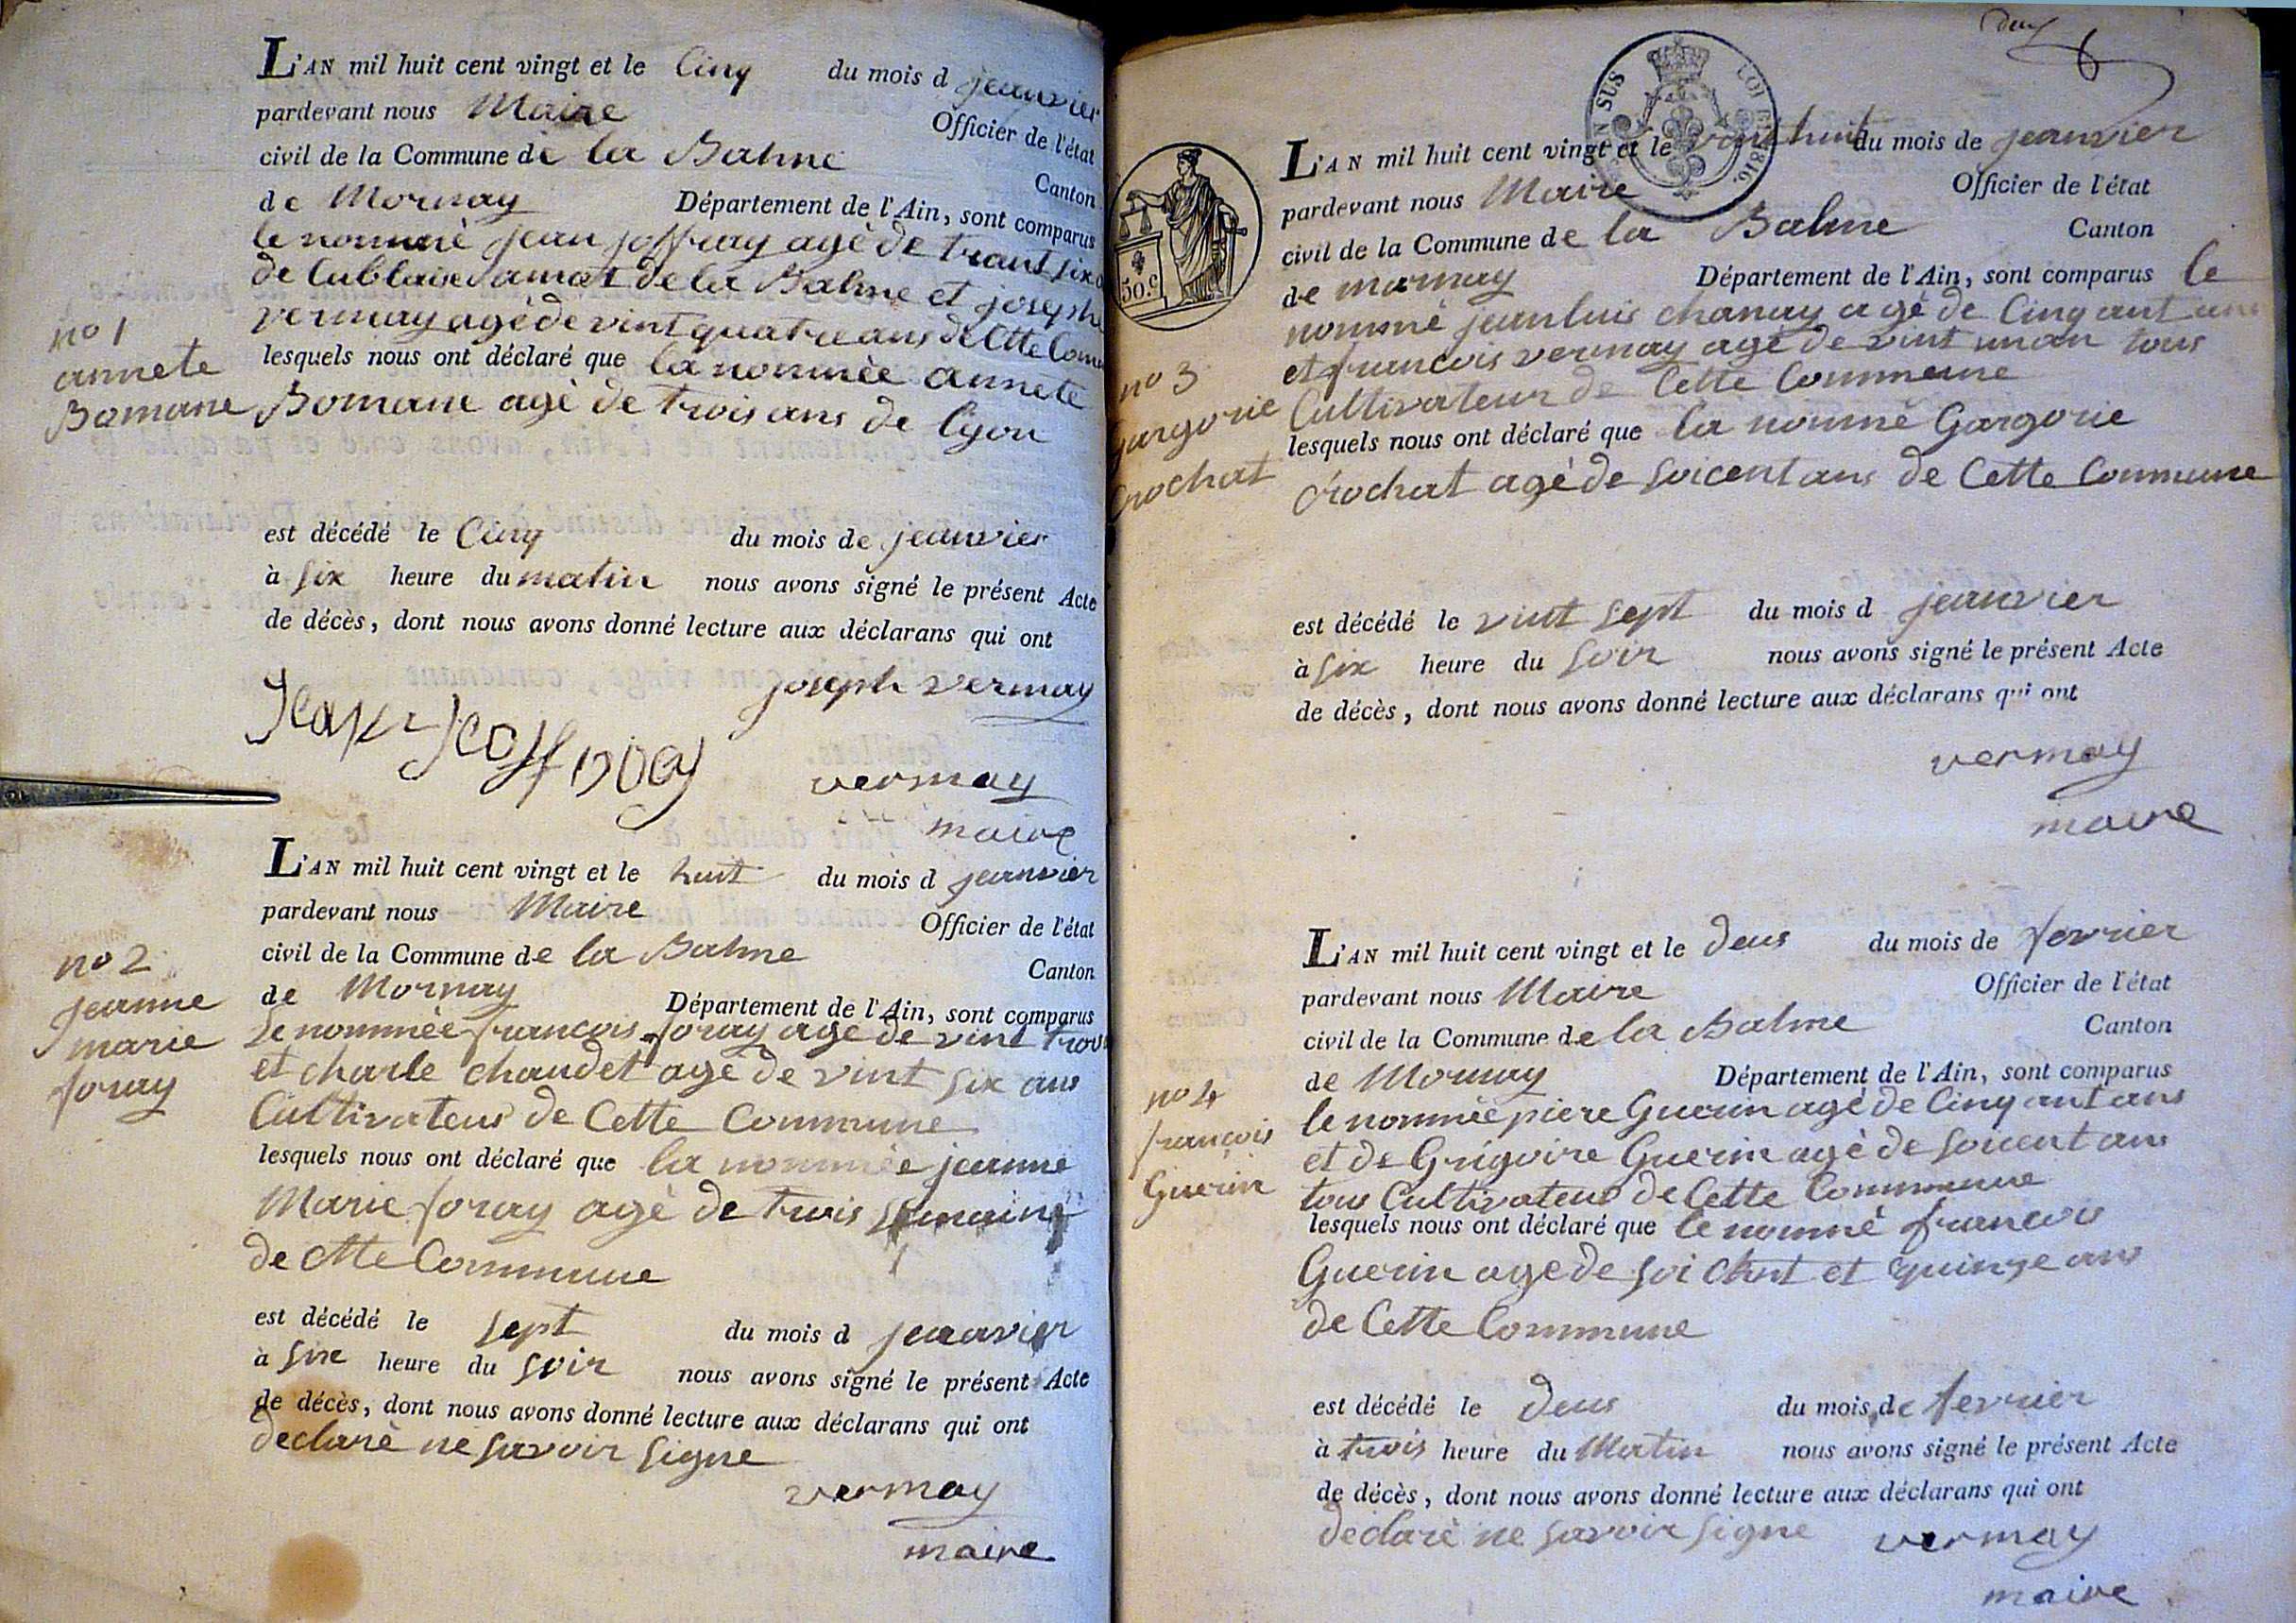 L'AN mil huit cent vingt et le Cinq du mois d jeanvier
pardevant nous Maire Officier de l'état
civil de la Commune de la Balme Canton
de Mornay Département de l'Ain, sont comparus
le nommé jean joffray agé de trant six
de la Balme et joseph
vernay agé de vint quatre ans de Cette Com
lesquels nous ont déclaré que la nommèe annete
Bomane agé de trois ans de lyon
no 1
annete
Bomane
est décédé le Cinq du mois de jeanvier
à six heure du matin nous avons signé le présent Acte
de décès, dont nous avons donné lecture aux déclarans qui ont
joseph vernay
vernay
maire
L'AN mil huit cent vingt et le huit du mois d jeanvier
pardevant nous Maire Officier de l'état
civil de la Commune de la Balme Canton
de Mornay Département de l'Ain, sont comparus
Le nommée francois foray age de vint trois
et charle chaudet agé de vint six ans
Cultivateur de Cette Commune
lesquels nous ont déclaré que la nommée jeanne
Marie foray agé de trois semaine
de Cette Commune
no 2
jeanne
marie
foray
est décédé le sept du mois d jeanvier
à six heure du soir nous avons signé le présent Acte
de décès, dont nous avons donné lecture aux déclarans qui ont
declaré ne savoir signe
vernay
maire
deux
LOI DE 1816.
EN SUS
50.c
L'AN mil huit cent vingt et le vint huit du mois de jeanvier
pardevant nous Maire Officier de l'état
civil de la Commune de la Balme Canton
de mornay Département de l'Ain, sont comparus le
nommé jean luis chanay agé de Cinqant ans
et francois vernay agé de vint un an tous
Cultivateur de Cette Commune
lesquels nous ont déclaré que la nommé Gargorie
Crochat agé de soicent ans de Cette Commune
no 3
Gargorie
Crochat
est décédé le vint sept du mois d jeanvier
à six heure du soir nous avons signé le présent Acte
de décès, dont nous avons donné lecture aux déclarans qui ont
vernay
maire
L'AN mil huit cent vingt et le deus du mois de fevrier
pardevant nous Maire Officier de l'état
civil de la Commune de la Balme Canton
de Mornay Département de l'Ain, sont comparus
le nommée piere Guerin agé de Cinq ant ans
et de Grigoire Guerin agé de soicent ans
tous Cultivateur de Cette Commune
lesquels nous ont déclaré que le nommé francois
Guerin age de soi chent et quinze ans
de Cette Commune
no 4
francois
Guerin
est décédé le deus du mois de fevrier
à trois heure du Matin nous avons signé le présent Acte
de décès, dont nous avons donné lecture aux déclarans qui ont
declaré ne savoir signe vernay
maire